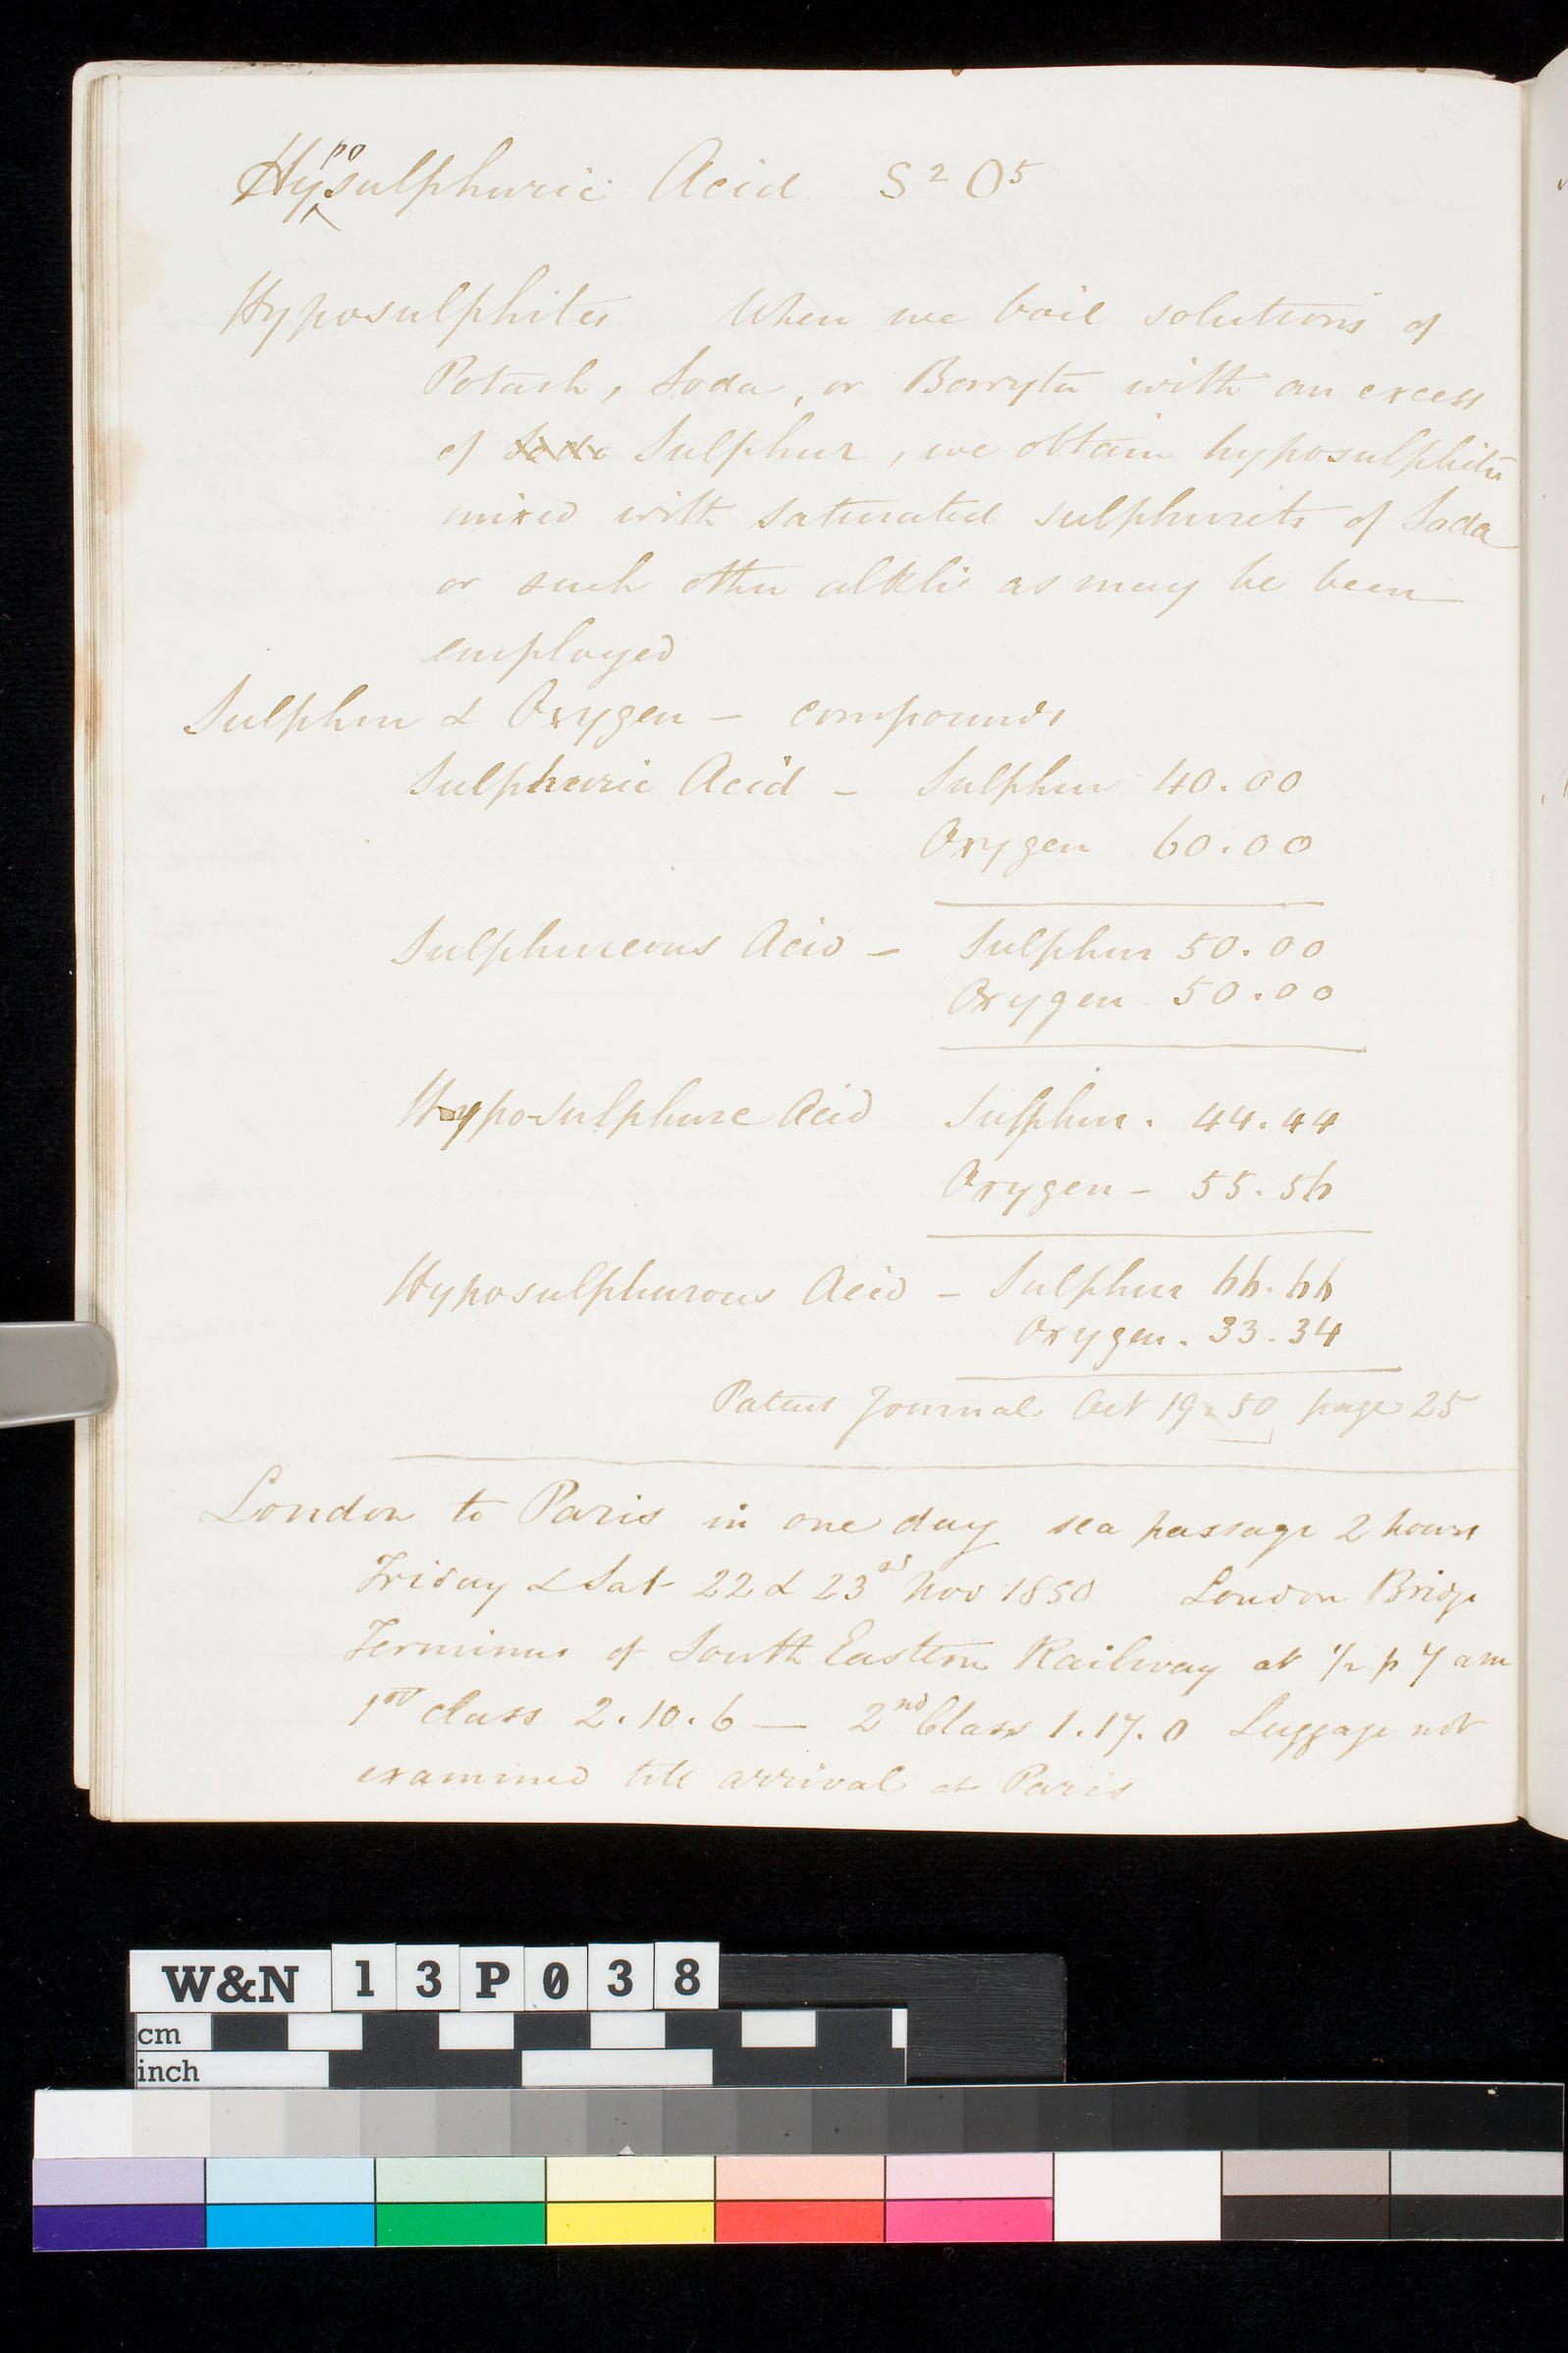 Hyposulphuric Acid S2 O5
Hyposulphites When we boil solutions of
Potash, Soda, or Barryta with an excess
of Soda Sulphur, we obtain hyposulphites
mixed with saturated sulphurets of Soda
or such other alklie as may be been
employed
Sulphur & Oxygen - compounds
Sulphuric Acid - Sulphur 40.00
Oxygen 60.00
Sulphureous Acid - Sulphur 50.00
Oxygen - 50.00
Hypo-sulphuric Acid Sulphur . 44.44
Oxygen - 55.56
Hyposulphurous Acid - Sulphur 66.66
Oxygen . 33.34
Patent Journal Oct 19 - 50 page 25
London to Paris in one day sea passage 2 hours
Friday & Sat 22 & 23rd Nov 1850 London Bridge
Terminus of South Eastern Railway at 1/2 p 7 am
1st class 2.10.6 — 2nd Class 1.17.0 Luggage not
examined till arrival at Paris
W&N 13P038
cm
inch